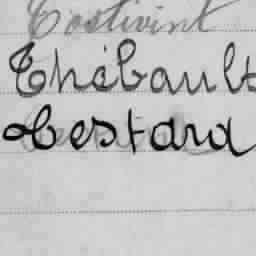 Costivint
Thébault
Testard